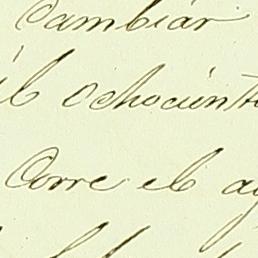 Cambiar
il ochocient
Corre el a